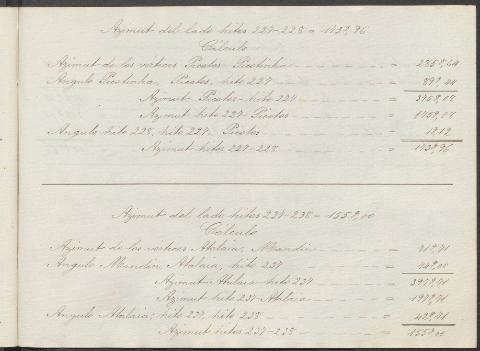 Azimut del lado hitos 227-228 = 173º,96
Cálculo
Azimut de los vértices Picotos - Picotinha = 285º,64
Angulo Picotinha, Picotos, hito 227 = 89º,44
Azimut Picotos - hito 227 = 375º,08
Azimut hito 227 Picotos = 175º,08
Angulo hito 228, hito 227, Picotos = 1º,12
Azimut hitos 227-228 = 173º,96
Azimut del lado hitos 237-238 = 155º,00
Cálculo
Azimut de los vértices Atalaia, Mundin
Angulo Mundin, Atalaia, hito 237
Azimut Atalaia hito 237 = 397º,71
Azimut hito 237 Atalaia = 197º,71
Angulo Atalaia, hito 237, hito 238 = 42º,71
Azimut hitos 237-238 = 155º,00